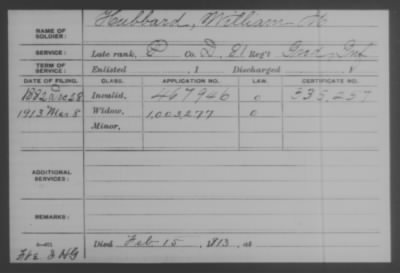 NAME OF SOLDIER: Hubbard, William H
SERVICE: Late rank, P Co. D, 81 Reg't Ind. Inf.
TERM OF SERVICE: Enlisted , 1 Discharged , 1
DATE OF FILING. CLASS. APPLICATION NO. LAW. CERTIFICATE NO.
1882 Dec 28 Invalid, 467946 0 335,237
1913 Mar. 8 Widow, 1,003277 0
Minor,
ADDITIONAL SERVICES:
REMARKS:
Died Feb 15, 1913, at